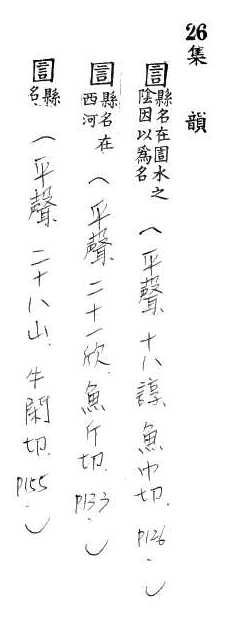 26集 韻
圁 縣名在圁水之陰因以爲名(平聲、十八諄、魚巾切、P126.)
圁 縣名在西河(平聲、二十一欣、魚斤切、P133.)
圁 縣名.(平聲、二十八山、牛閑切、P155.)